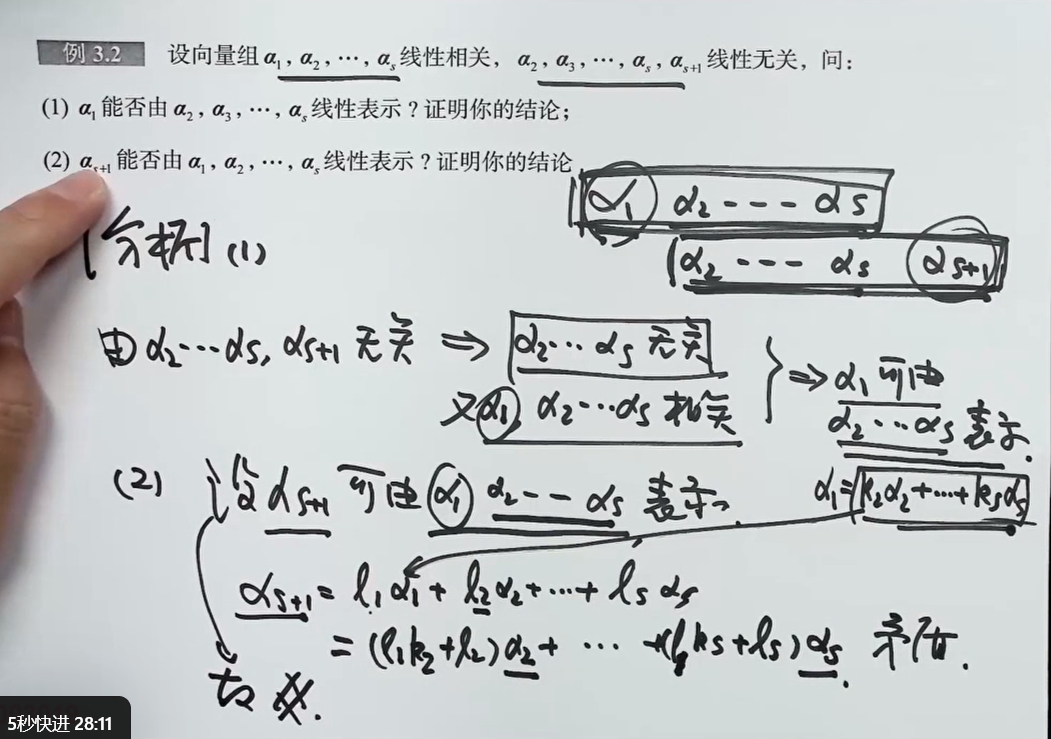 例 3.2 设向量组α₁, α₂, ⋯, αₛ线性相关, α₂, α₃, ⋯, αₛ, αₛ₊₁线性无关, 问:
(1) α₁能否由α₂, α₃, ⋯, αₛ线性表示？证明你的结论;
(2) αₛ₊₁能否由α₁, α₂, ⋯, αₛ线性表示？证明你的结论
α₁ α₂ --- αs
α₂ --- αs αs+1
[分析] (1)
由α₂⋯αs, αs+1 无关 ⇒ α₂⋯αs 无关
又α₁, α₂⋯αs 相关
⇒ α₁ 可由
α₂⋯αs 表示.
α₁=k₂α₂+⋯+ksαs
(2) 设αs+1 可由α₁ α₂--αs 表示.
αs+1 = l₁α₁ + l₂α₂+⋯+ lsαs
= (l₁k₂+l₂)α₂+ ⋯ +(l₁ks+ls)αs 矛盾.
5秒快进 28:11